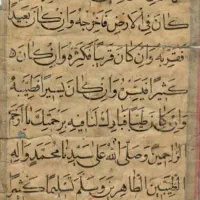 كان في الارض فاخرجه وان كان بعيدا
فقربه وان كان قريبا فكثره وان كان
كثيرا وان كان يسيرا فطيبه
وان كان طيبا فبارك لنا فيه برحمتك يا ارحم
الراحمين وصلى الله على سيدنا محمد واله
الطيبين الطاهرين وسلم تسليما كثيرا